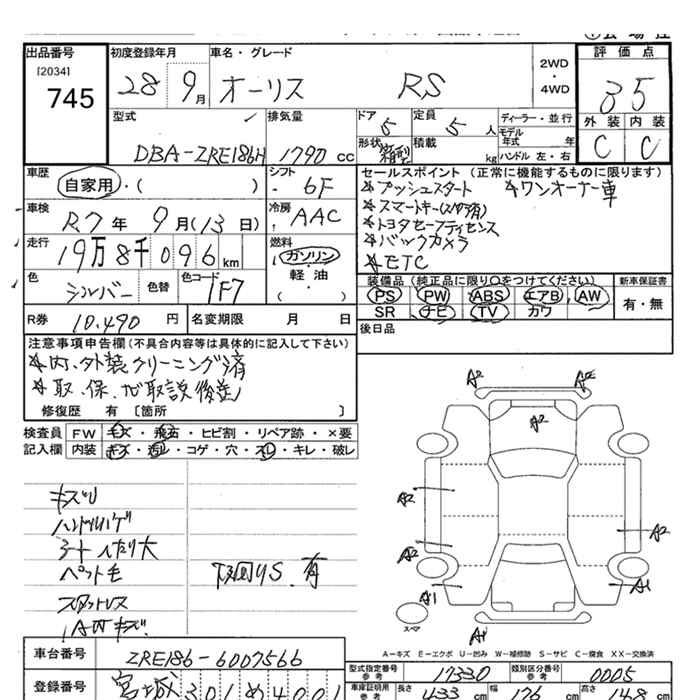 出品番号 初度登録年月 車名・グレード 2WD・4WD 評価点
[20341]
745 28 9月 オーリス RS 3 5
型式 排気量 ドア 5 定員 5人 ディーラー・並行 外装 内装
DBA-ZRE186H 1790cc 形状 箱型 積載 kg モデル年式 年 ハンドル 左・右 C C
車歴 自家用・( ) シフト ・6F セールスポイント(正常に機能するものに限ります)
プッシュスタート ワンオーナー車
車検 R.7年 9月(13日) 冷房 AAC
トヨタセーフティセンス
走行 19万8千096km 燃料 ガソリン・軽油( )
バックカメラ
ETC
色 シルバー 色替 色コード 1F7
装備品(純正品に限り○をつけてください) 新車保証書
PS PW ABS エアB AW 有・無
SR ナビ TV カワ
R券 10.490円 名変期限 月 日 後日品
注意事項申告欄(不具合内容等は具体的に記入して下さい)
内、外装クリーニング済
取、保、ナビ取説後送
修復歴 有 〔箇所 〕
検査員記入欄 FW キズ・飛石・ヒビ割・リペア跡・×要
内装 キズ・汚レ・コゲ・穴・スレ・キレ・破レ
A2 A2
A2
キズ
ハンドルハゲ
シートヘたり大
ペット毛
スタットレス
AWキズ
下回りS.有
A2 A2
A2
A1 A1
スペア
A1
A-キズ E-エクボ U-凹み W-補修跡 S-サビ C-腐食 XX-交換済
車台番号 ZRE186-6007566
型式指定番号 参考 17330 類別区分番号 参考 0005
登録番号 宮城 301 め 4001
車庫証明用 参考 長さ 433cm 幅 176cm 高さ 148cm